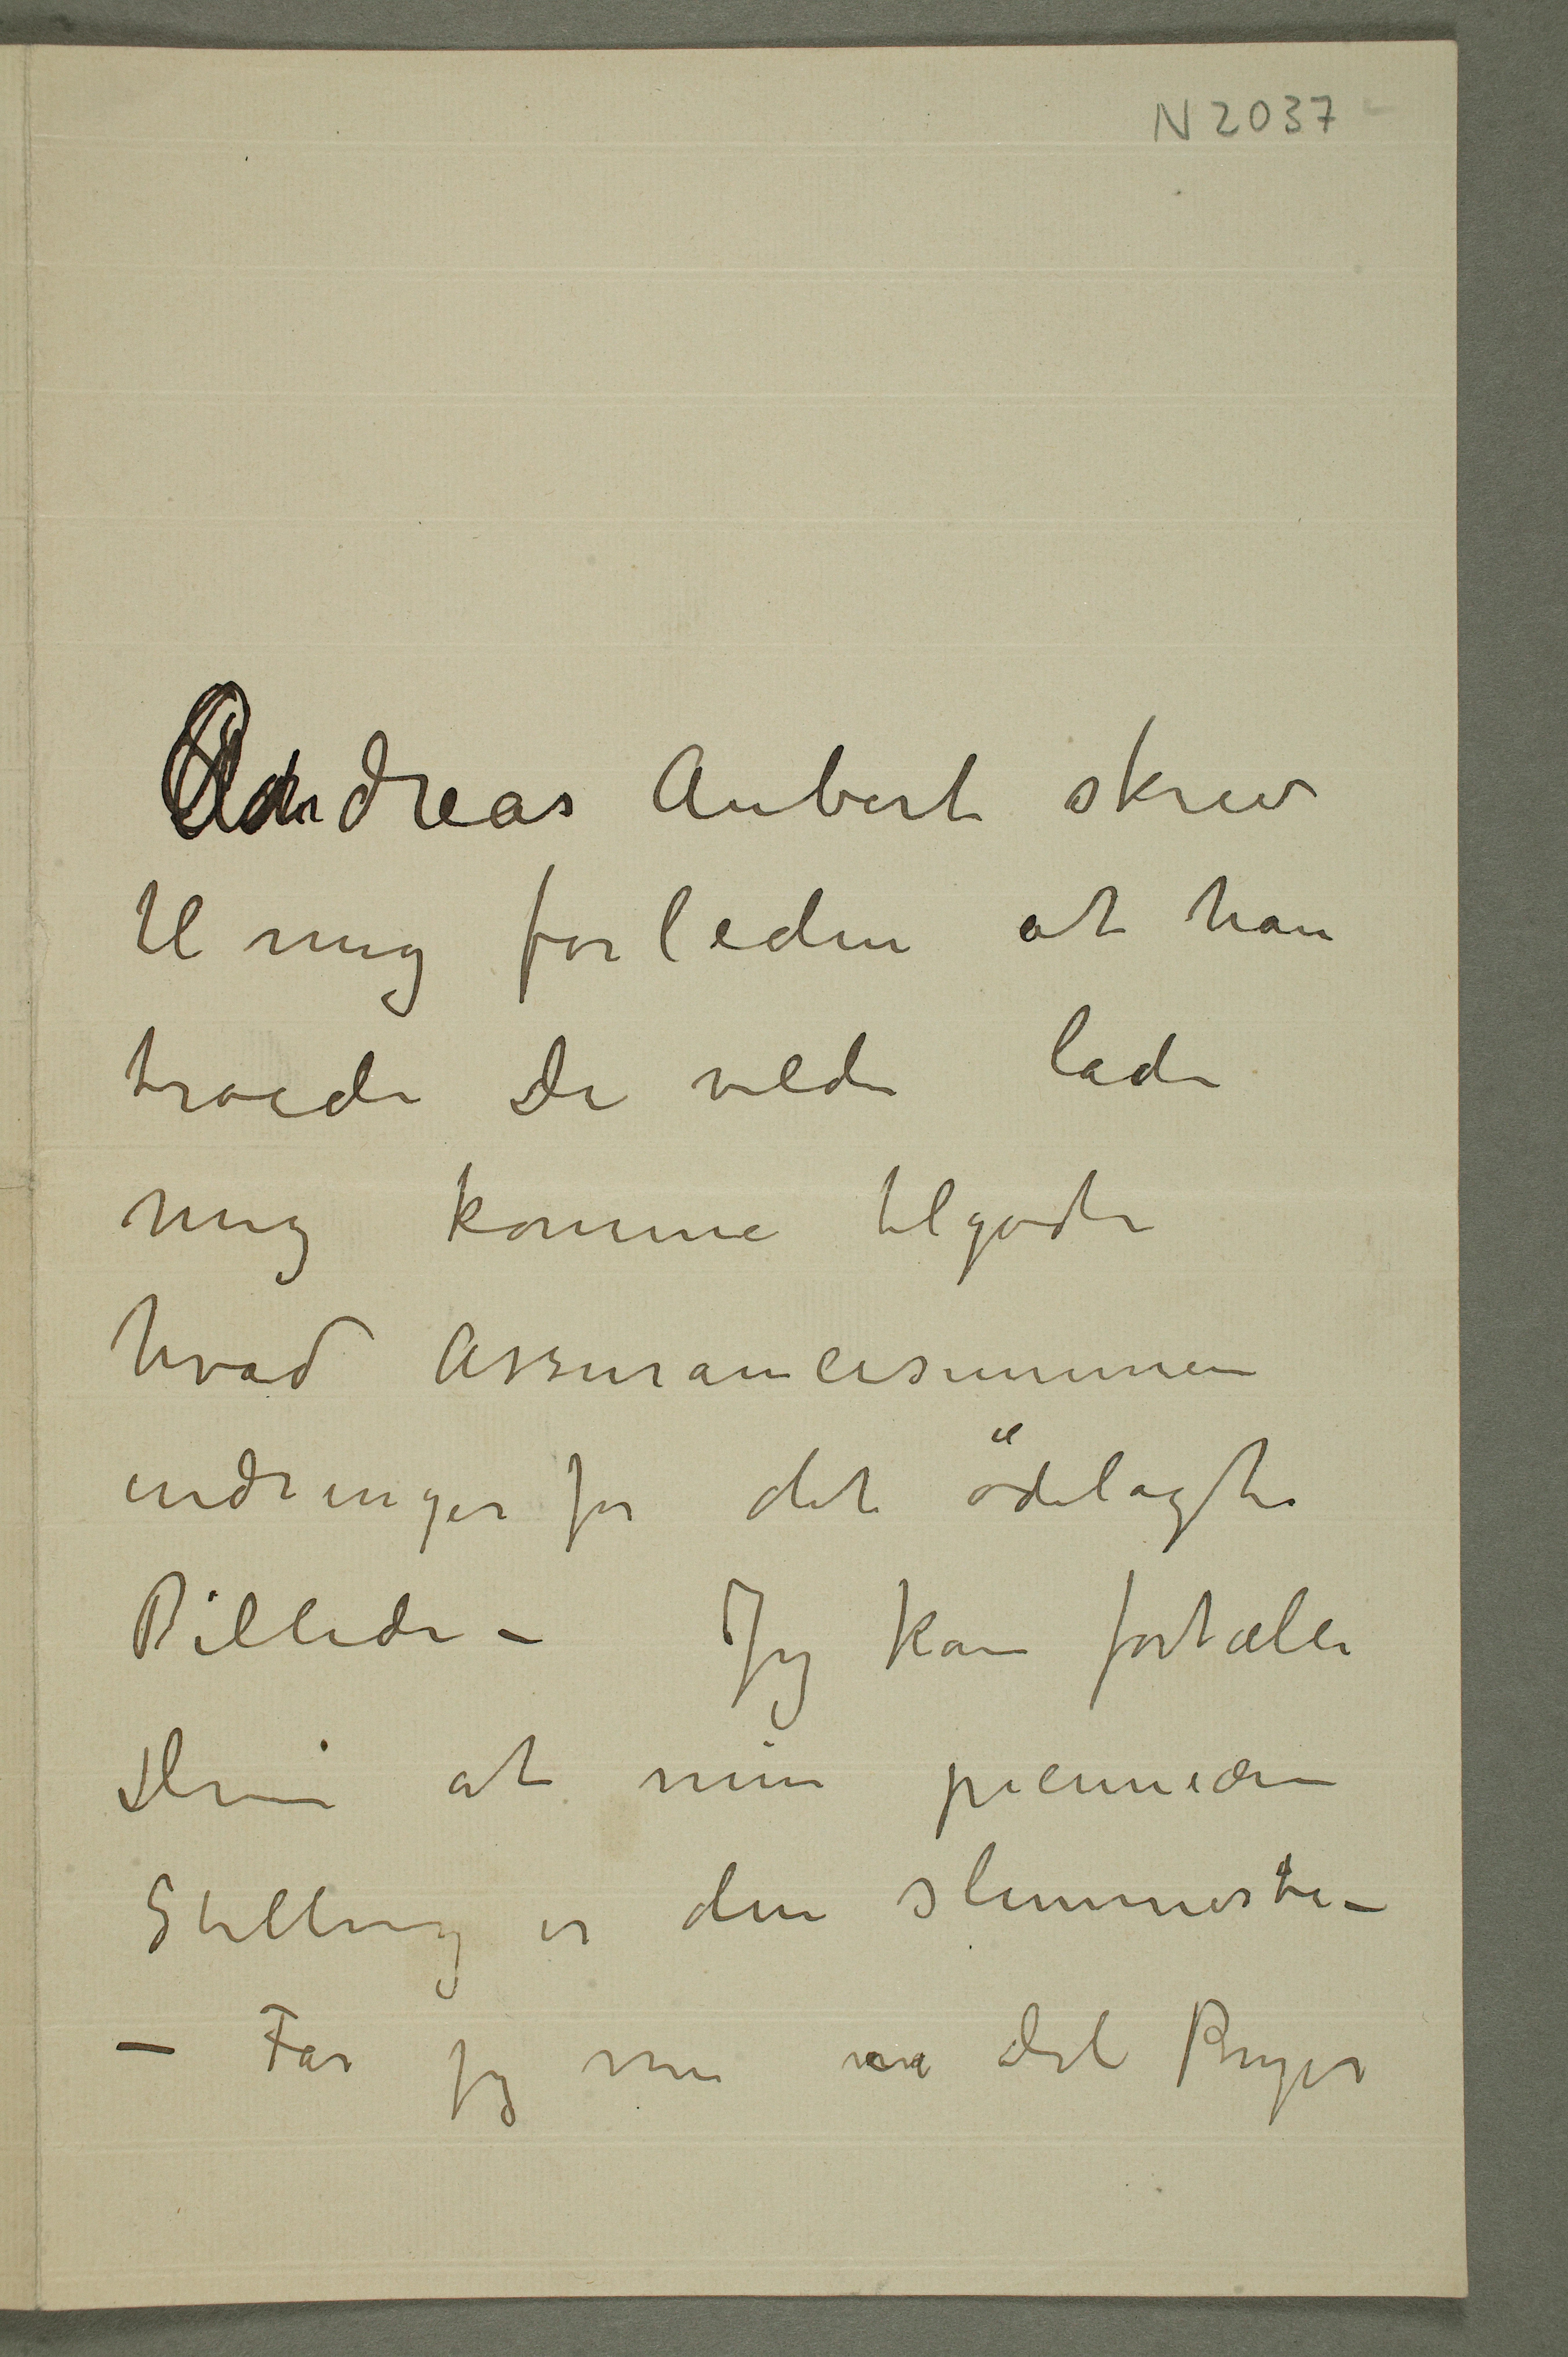 N 2037
Andreas Aubert skrev
til mig forleden at han
troede De vilde lade
mig komme tilgode
hvad Assurancesummen
indringer for det ödelagte
Billede – Jeg kan fortælle
Dem at min pecuniære
Stilling er den slemmeste –
– Får jeg nu en del Penger